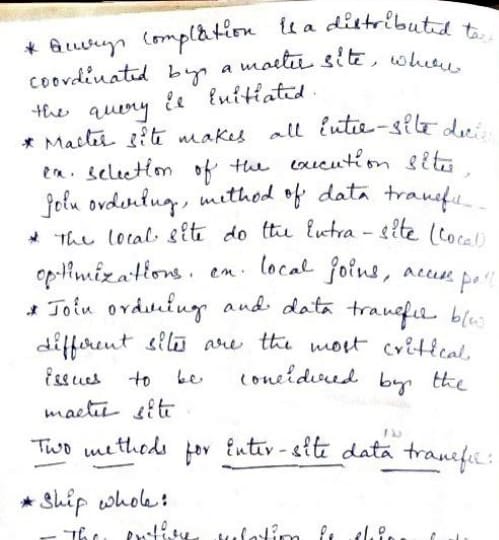 * Query compilation is a distributed
coordinated by a master site, where
the query is initiated.
* Master site makes all inter-site
ex. selection of the execution sites,
join ordering, method of data transfer
* The local site do the intra-site (local)
optimizations. ex. local joins, access
* Join ordering and data transfer b/w
different sites are the most critical
issues to be considered by the
master site
Two methods for inter-site data transfer:
* Ship whole:
- The entire relation is